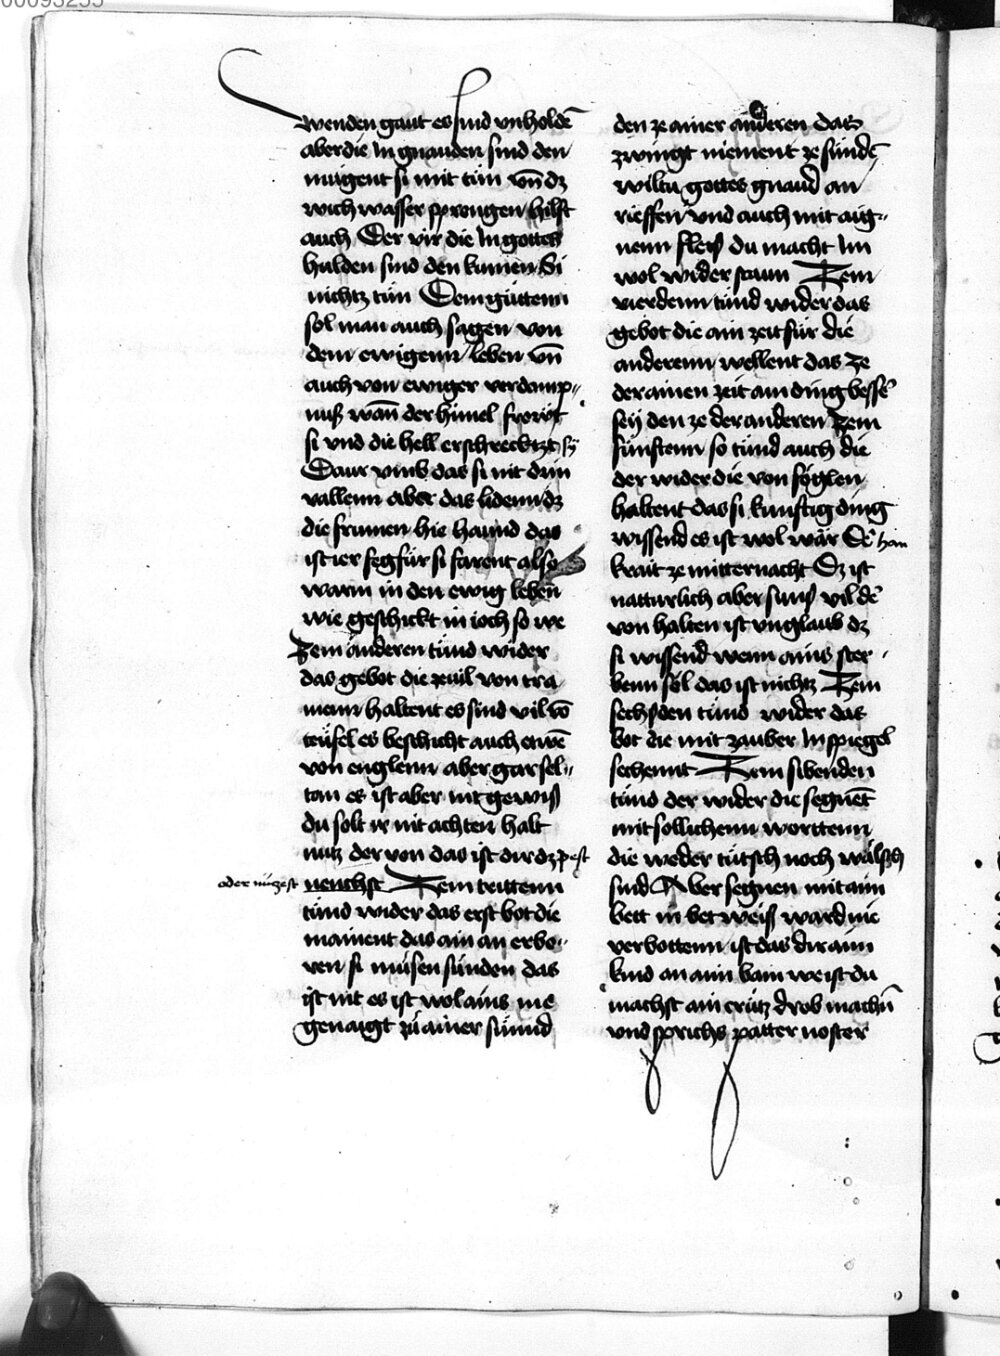 00093255
wenden gaut es sind vnholdē
aber die in gnauden sind den
mügent si nit tün vnd dz
wich wasser sprengen hilft
auch Der vir die in gottes
hulden sind den kunnen Si
nichtz tün Dem güttenn
sol man auch sagen von
dem ewigenn leben vnd
auch von ewiger verdamp-
nuß wann der himel frowt
si vnd die hell erschrecktzt sy
Daur vmb das si nit drin
vallenn aber das lidenn dz
die frumen hie haund das
ist ier fegfür si farent also
warm in den ewig leben
wie geschickt in ioch so we
Zem anderen tünd wider
das gebot die ze uil von tra
menn haltent es sind vil vō
teüfel es beschicht auch etwē
von englenn aber gar sel-
tan es ist aber nit gewiß
du solt ir nit achten halt
nutz der von das ist dir dz pest
oder nützest nenchst Zem trittenn
tünd wider das erst bot die
mainent das ain an erbo-
ren si müsen sünden das
ist nit es ist wol ains me
genaigt zü ainer sünnd
den ze ainer anderen das
zwingt niement ze sündē
wiltu gottes gnaud an
rieffen vnd auch mit aig-
nenn fleiß du macht im
wol wider staun Zem
vierdenn tünd wider das
gebot die ain zeit für die
anderenn wellent das ze
der ainen zeit ain ding besser
sey den ze der anderen Zem
fünftenn so tünd auch die
der wider die von föglen
haltent das si künftig ding
wissend es ist wol wär Der han
krait ze mitternacht Dz ist
natturlich aber sunß vil de
von halten ist vnglaub dz
si wissend wenn ains ster-
benn söl das ist nichtz Zem
sechsden tünd wider das
bot die mit zauber in spiegel
sechennt Zem sibenden
tünd der wider die segnēt
mit sollichenn worttenn
die weder tütsch noch wälsch
sind Aber segnen mit ainn
bett in bet weiß ward nie
verbottenn ist das dir ainn
kind an ainn bain we ist du
machst ain crütz drob machn
vnd sprichs patter noster